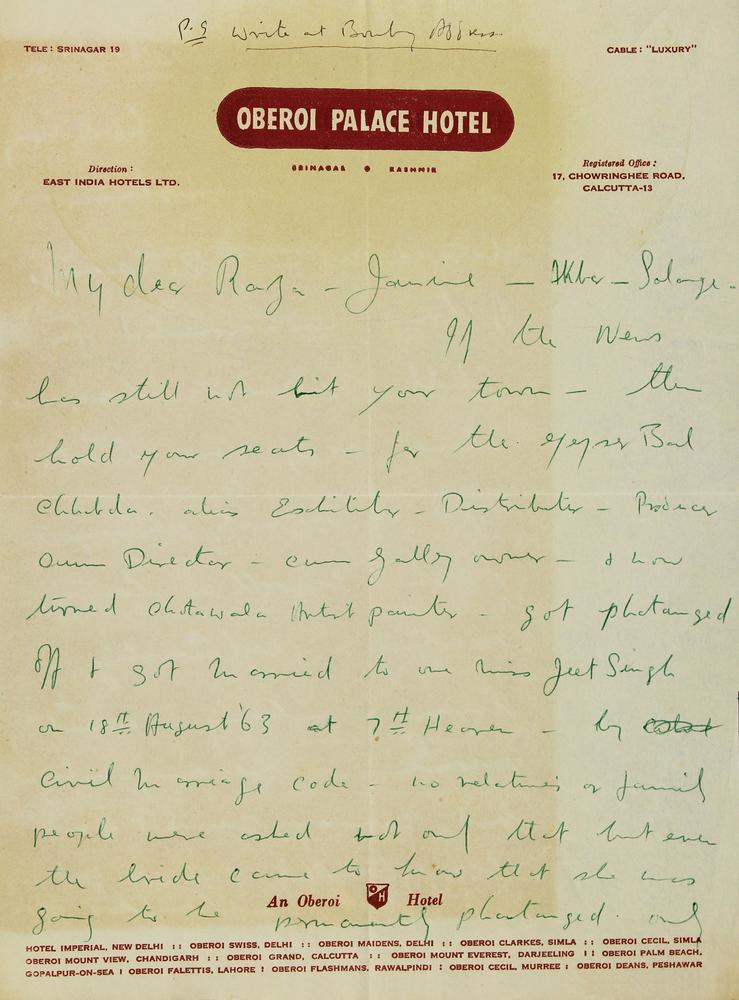 P.S Write at Bombay Address
TELE : SRINAGAR 19
CABLE : "LUXURY"
OBEROI PALACE HOTEL
SRINAGAR KASHMIR
Direction :
EAST INDIA HOTELS LTD.
Registered Office :
17, CHOWRINGHEE ROAD,
CALCUTTA-13
My dear Raza – Janine – Akbar – Solange.
If the News
has still not hit your town – then
hold your seats – for the Bal
Chhabda. alias Exhibitor – Distributor – Producer
cum Director – cum Gallery owner – & now
turned Chotawala Artist painter – got phatanged
off & got married to one Miss Jeet Singh
on 18th August '63 at 7th Heaven – by
Civil Marriage code – no relatives or family
people were asked not only that but even
the bride came to know that she was
going to be permanently phatanged. only
An Oberoi OH Hotel
HOTEL IMPERIAL, NEW DELHI :: OBEROI SWISS, DELHI :: OBEROI MAIDENS, DELHI :: OBEROI CLARKES, SIMLA :: OBEROI CECIL, SIMLA
OBEROI MOUNT VIEW, CHANDIGARH :: OBEROI GRAND, CALCUTTA :: OBEROI MOUNT EVEREST, DARJEELING :: OBEROI PALM BEACH,
GOPALPUR-ON-SEA : OBEROI FALETTIS, LAHORE : OBEROI FLASHMANS, RAWALPINDI : OBEROI CECIL, MURREE : OBEROI DEANS, PESHAWAR